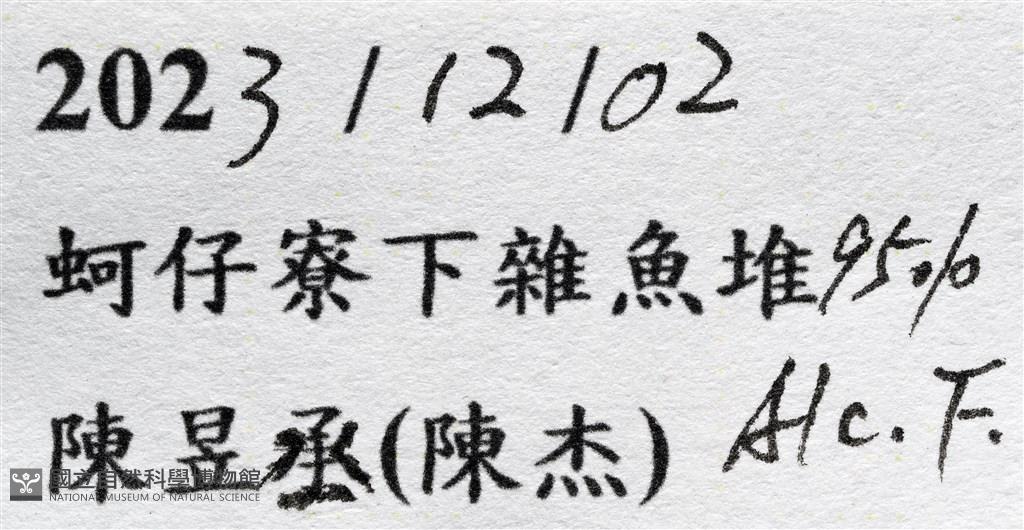 2023/12/02
蚵仔寮下雜魚堆95%
陳昱丞(陳杰) Alc. F.
國立自然科學博物館
NATIONAL MUSEUM OF NATURAL SCIENCE